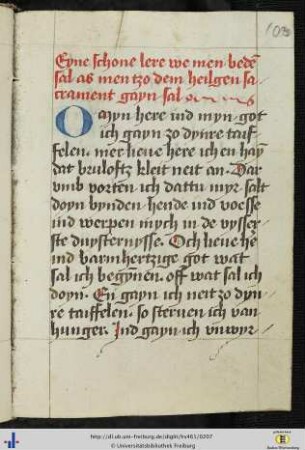 103
Eyne schone lere we men beden
sal as men tzo dem heilgen sa
crament gayn sal
O myn here ind myn got
ich gayn zo dynre taif
felen. mer lieue here ich en hayn
dat bruloftz kleit neit an. Dar
vmb vorten ich dattu myr salt
doyn bynden hende ind voesse
ind werpen mych in de vysser
ste duysternysse. Och lieue he
ind barmhertzige got wat
sal ich begynnen. off wat sal ich
doyn. En gayn ich neit zo dyn
re taiffelen. so steruen ich van
hunger. Ind gayn ich vnwyr
http://dl.ub.uni-freiburg.de/diglit/hs463/0207
© Universitätsbibliothek Freiburg
Baden-Württemberg